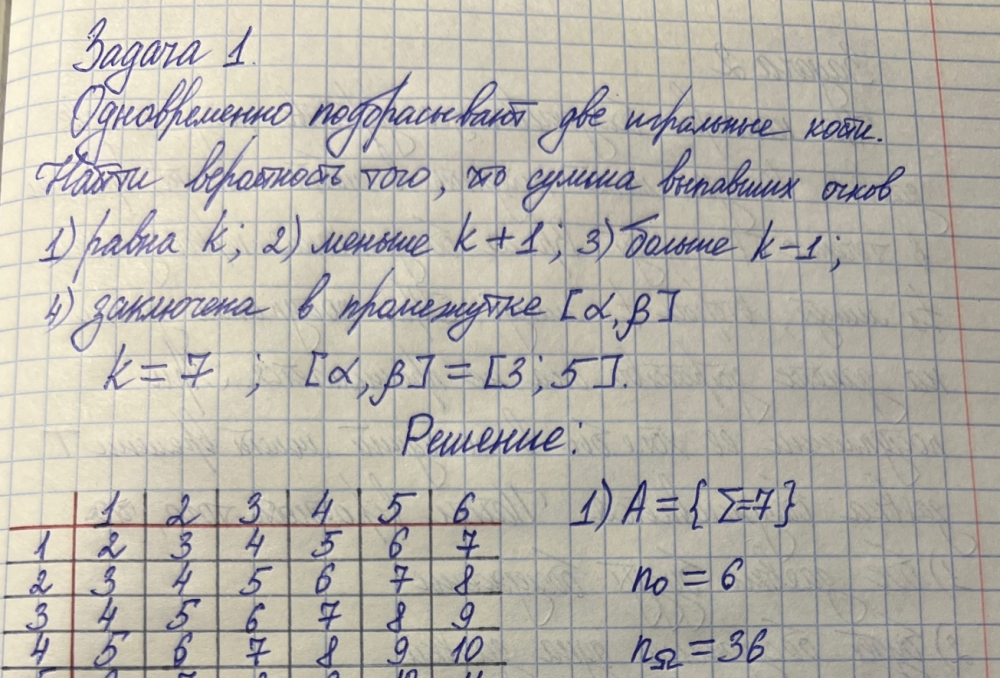 Задача 1.
Одновременно подбрасывают две игральные кости.
Найти вероятность того, что сумма выпавших очков
1) равна k; 2) меньше k+1; 3) больше k-1;
4) заключена в промежутке [α, β]
k = 7 ; [α, β] = [3; 5].
Решение:
1 2 3 4 5 6
1 2 3 4 5 6 7
2 3 4 5 6 7 8
3 4 5 6 7 8 9
4 5 6 7 8 9 10
1) A = { Σ=7 }
n₀ = 6
n_Ω = 36